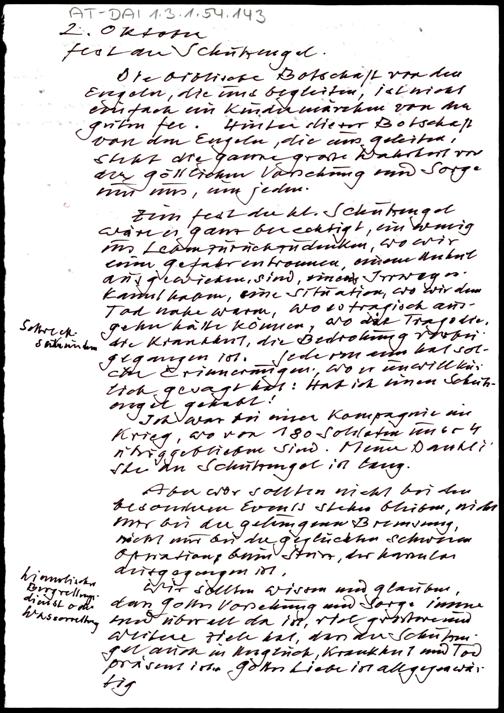 AT-DAI 1.3.1.54.143
2. Oktober
Fest der Schutzengel.
Die biblische Botschaft von den
Engeln, die uns begleiten, ist nicht
einfach ein Kindermärchen von der
guten Fee. Hinter dieser Botschaft
von den Engeln, die uns geleiten,
steht die ganze große Wahrheit von
der göttlichen Vorsehung und Sorge
um uns, um jeden.
Zum Fest der hl. Schutzengel
wäre es ganz berechtigt, ein wenig
ins Leben zurückzudenken, wo wir
einer Gefahr entronnen, einem Unheil
ausgewichen, sind, einen Irrweg er-
kannt haben, eine Situation, wo wir dem
Tod nahe waren, wo es tragisch aus-
gehen hätte können, wo die Tragödie,
die Krankheit, die Bedrohung vorbei
gegangen ist. Jedermann hat sol-
che Erinnerungen, wo er unwillkür-
lich gesagt hat: Hat ich einen Schutz-
engel gehabt!
Schreck
Ich war bei einer Kompagnie im
Krieg, wo von 180 Soldaten unser 4
übriggeblieben sind. Meine Dankli-
ste an Schutzengel ist lang.
Aber wir sollten nicht bei den
besonderen Events stehen bleiben, nicht
nur bei der gelungenen Bremsung,
nicht nur bei der geglückten schweren
Operation, beim Sturz, der harmlos
ausgegangen ist.
Wir sollten wissen und glauben,
dass Gottes Vorsehung und Sorge immer
und überall da ist, viel größere und
weitere Ziele hat, dass der Schutzen-
gel auch in Unglück, Krankheit und Tod
präsent ist. Gottes Liebe ist allgegenwär-
tig
himmlischer
Bergrettungs-
dienst oder
Wasserrettung